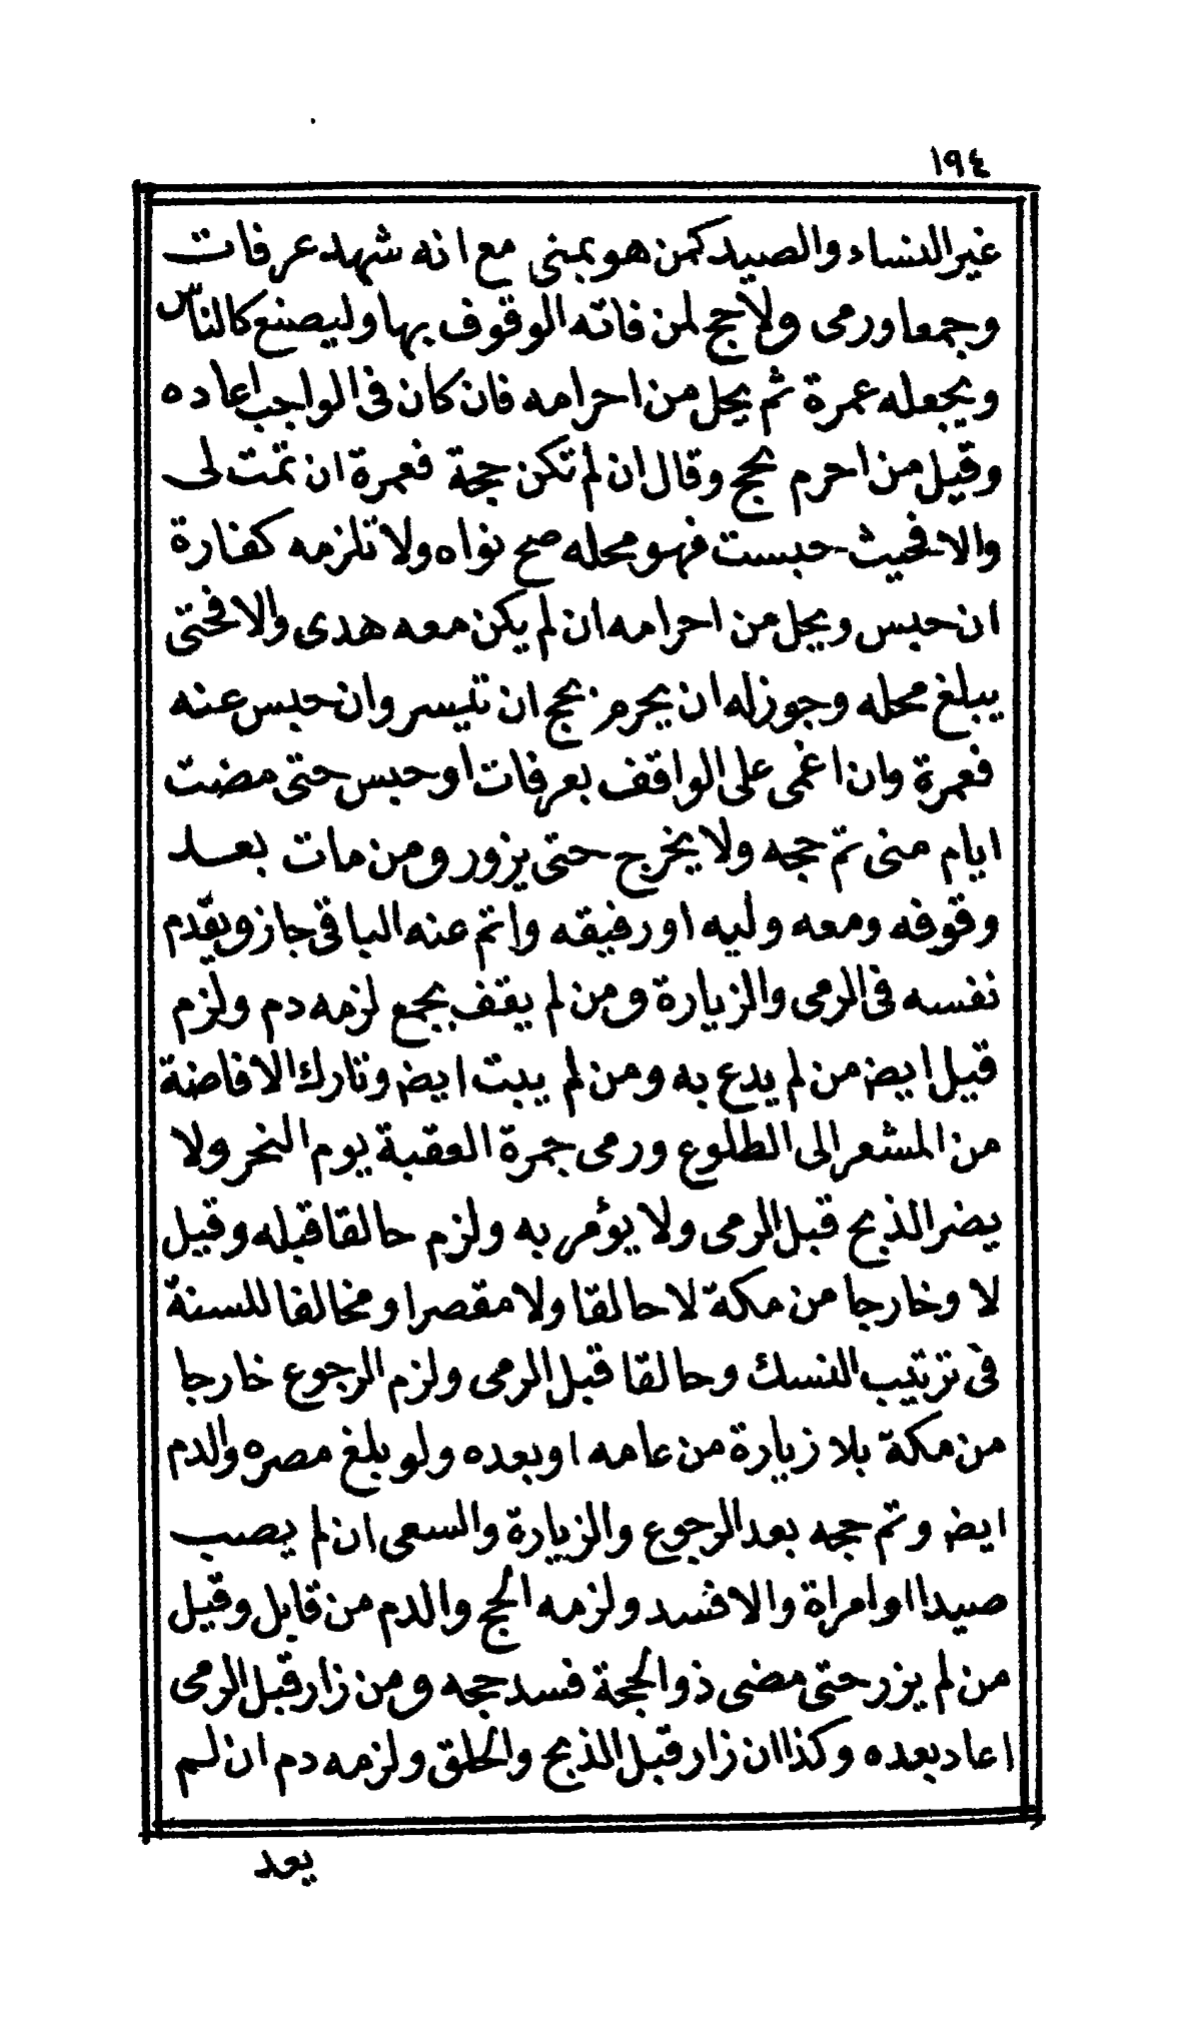 ١٩٤
غير النساء والصيد كمن هو بمنى مع انه شهد عرفات
وجمعا ورمى ولا حج لمن فاته الوقوف بها وليصنع كالناس
ويجعله عمرة ثم يحل من احرامه فان كان فى الواجب اعاده
وقيل من احرم بحج وقال ان لم تكن حجة فعمرة ان تمت لى
والا فحيث حبست فهو محله صح نواه ولا تلزمه كفارة
ان حبس ويحل من احرامه ان لم يكن معه هدى والا فحتى
يبلغ محله وجوز له ان يحرم بحج ان تيسر وان حبس عنه
فعمرة وان اغمى على الواقف بعرفات او حبس حتى مضت
ايام منى تم حجه ولا يخرج حتى يزور ومن مات بعد
وقوفه ومعه وليه او رفيقه واتم عنه الباقى جاز ويقدم
نفسه فى الرمى والزيارة ومن لم يقف بجمع لزمه دم ولزم
قيل ايض من لم يدع به ومن لم يبت ايض وتارك الافاضة
من المشعر الى الطلوع ورمى جمرة العقبة يوم النحر ولا
يضر الذبح قبل الرمى ولا يؤمر به ولزم حالقا قبله وقيل
لا وخارجا من مكة لا حالقا ولا مقصرا ومخالفا للسنة
فى ترتيب النسك وحالقا قبل الرمى ولزم الرجوع خارجا
من مكة بلا زيارة من عامه او بعده ولو بلغ مصره والدم
ايض وتم حجه بعد الرجوع والزيارة والسعى ان لم يصب
صيدا او امراة والا فسد ولزمه الحج والدم من قابل وقيل
من لم يزر حتى مضى ذو الحجة فسد حجه ومن زار قبل الرمى
اعاد بعده وكذا ان زار قبل الذبح والحلق ولزمه دم ان لم
يعد